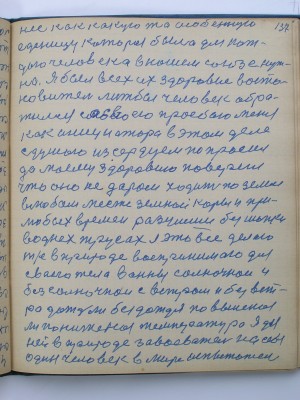 нее как какую то особенную 137
еденицу которая была для каж-
дого человека в нашем союзе нуж-
на. Я был всех их здоровие восто-
новител любой человек обра-
тился со своею просбою меня
как и в этом деле
сердцем попросил
да моему здоровию поверил
что оно не даром ходит по земле
в любом месте земной коры и при
любых времен разишии без шапки
в одних трусах я это все делаю
то в природе воспринимаю для
своего тела ванны солночной и
без солночной с ветром и без вет-
ра дождя без дождя повышеной
ли пониженой температура Я для
ней в природе завоевател на сам
один человек в мире испытател